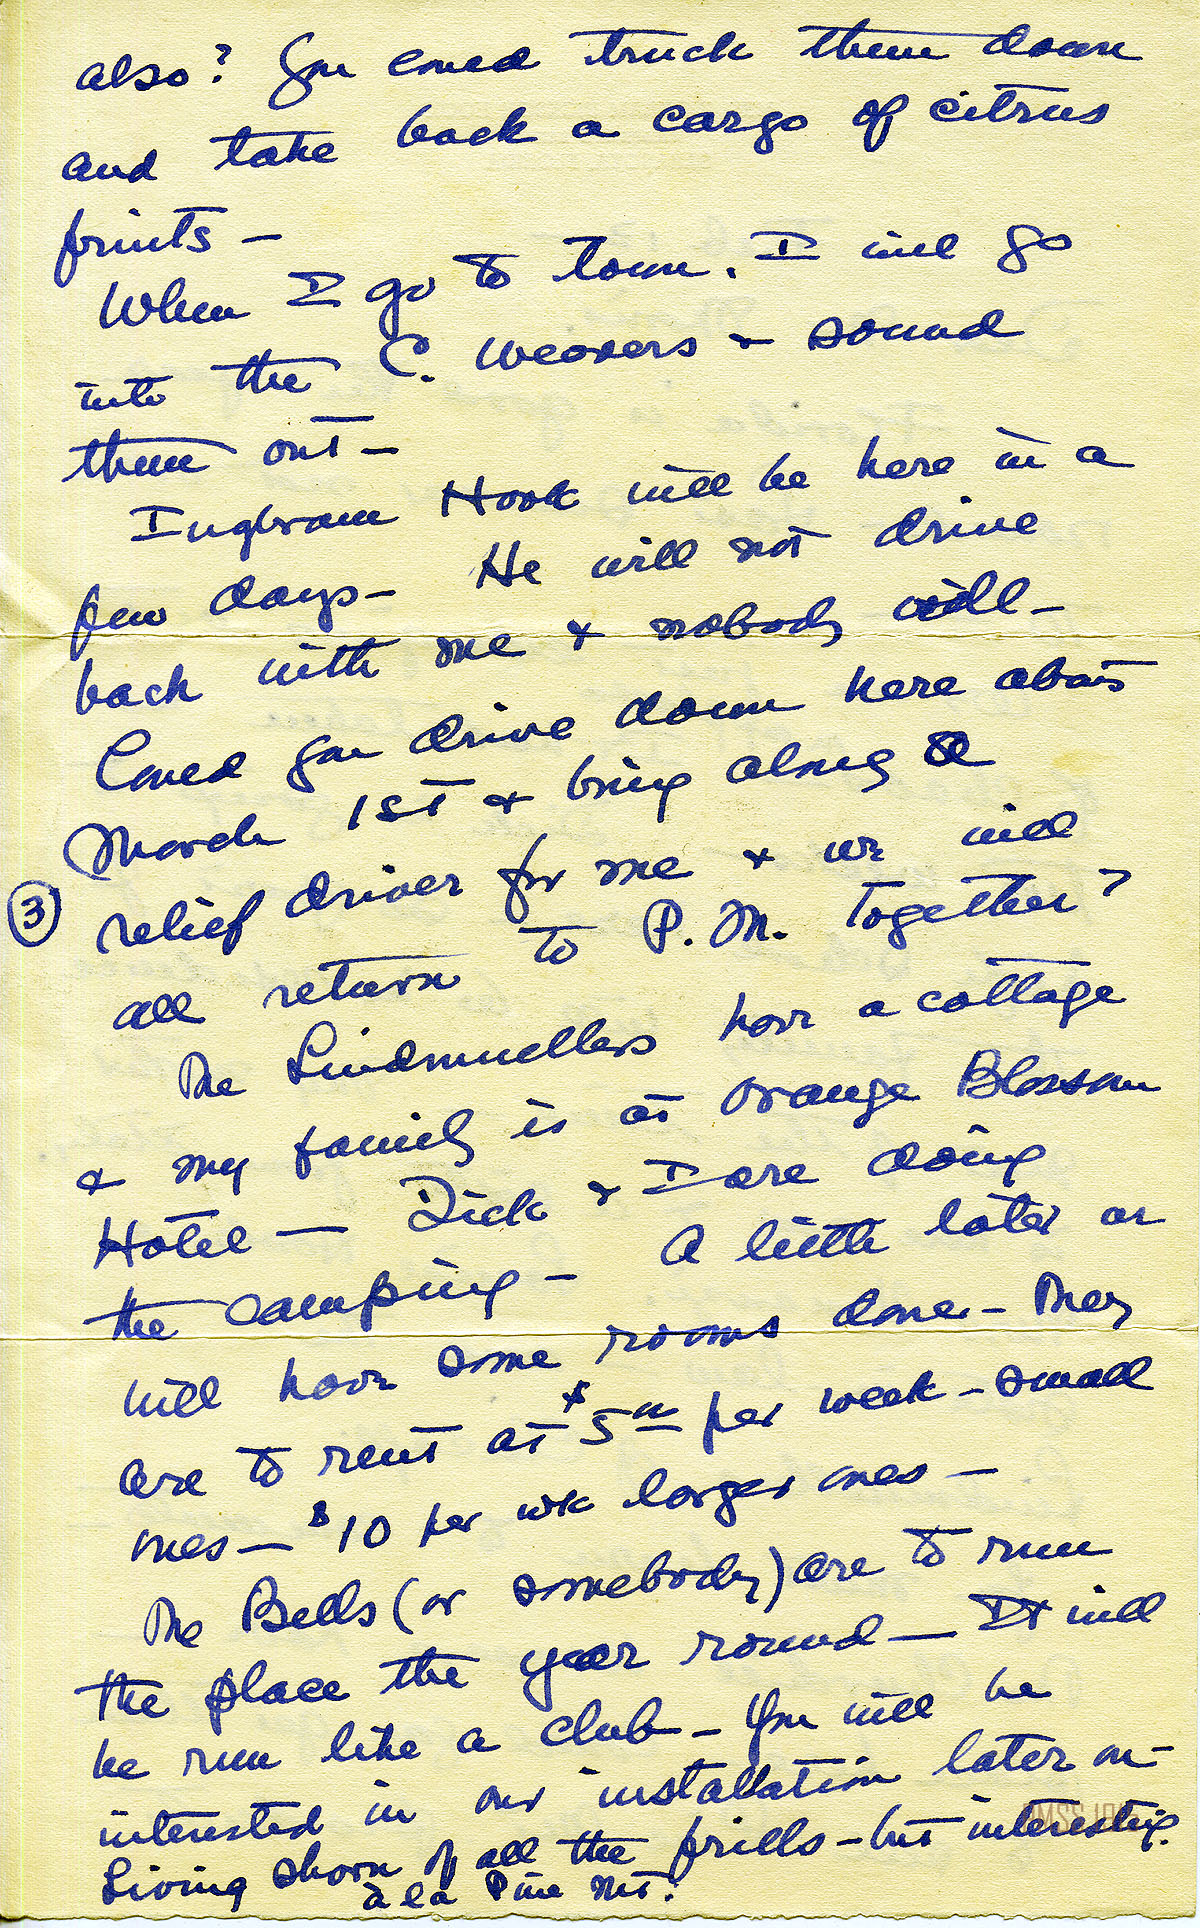 also? You could truck them down
and take back a cargo of citrus
fruits —
When I go to town. I will go
into the C. Weavers & sound
them out —
Ingbram Hook will be here in a
few days — He will not drive
back with me & nobody will —
Could you drive down here about
March 1st & bring along a
relief driver for me & we will
③
all return to P.M. together?
The Lindmuellers have a cottage
& my family is at Orange Blossom
Hotel — Dick & I are doing
the camping — A little later on
will have some rooms done — They
are to rent at $5 00 per week — small
ones — $10 per wk larger ones —
The Bells (or somebody) are to run
the place the year round — It will
be run like a club — You will be
interested in our installation later on —
Living shorn of all the frills — but interesting.
à la Pine Mt.